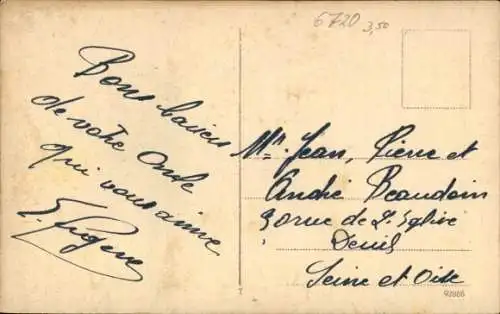 6720
3,50
Bons baisers
de votre Oncle
qui vous aime
Mrs Jean, Pierre et
André Beaudoin
30 rue de l'Eglise
Deuil
Seine et Oise